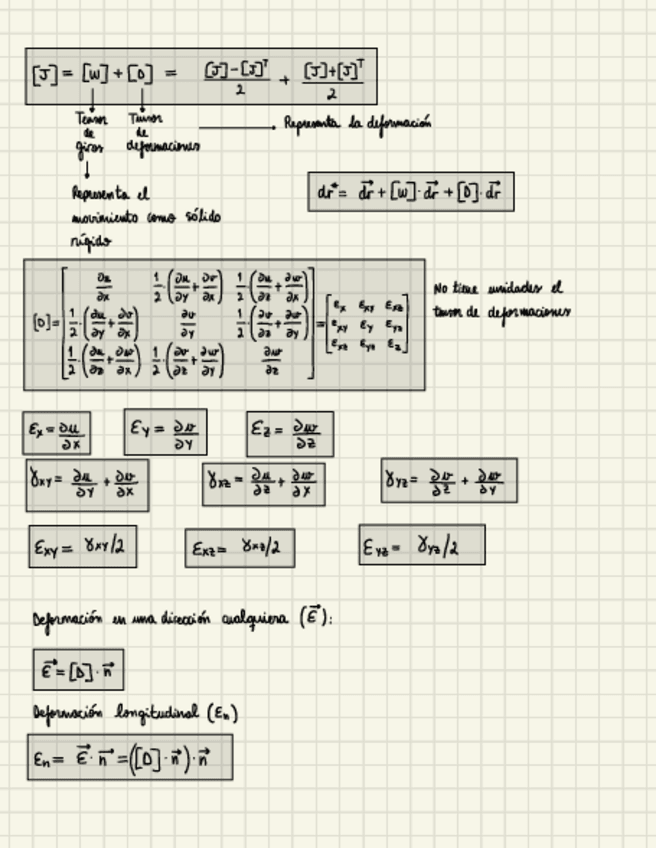 [J] = [W] + [D] = ([J]-[J]^T)/2 + ([J]+[J]^T)/2
Tensor de giros
Tensor de deformaciones
Representa la deformación
Representa el
movimiento como sólido
rígido
dr* = dr + [W]·dr + [D]·dr
[D] = [∂u/∂x 1/2·(∂u/∂y+∂v/∂x) 1/2·(∂u/∂z+∂w/∂x)
1/2·(∂u/∂y+∂v/∂x) ∂v/∂y 1/2·(∂v/∂z+∂w/∂y)
1/2·(∂u/∂z+∂w/∂x) 1/2·(∂v/∂z+∂w/∂y) ∂w/∂z]
= [εx εxy εxz
εxy εy εyz
εxz εyz εz]
No tiene unidades el
tensor de deformaciones
εx = ∂u/∂x εy = ∂v/∂y εz = ∂w/∂z
γxy = ∂u/∂y + ∂v/∂x γxz = ∂u/∂z + ∂w/∂x γyz = ∂v/∂z + ∂w/∂y
εxy = γxy/2 εxz = γxz/2 εyz = γyz/2
Deformación en una dirección cualquiera (ε⃗):
ε⃗ = [D]·n⃗
Deformación longitudinal (εn)
εn = ε⃗·n⃗ = ([D]·n⃗)·n⃗